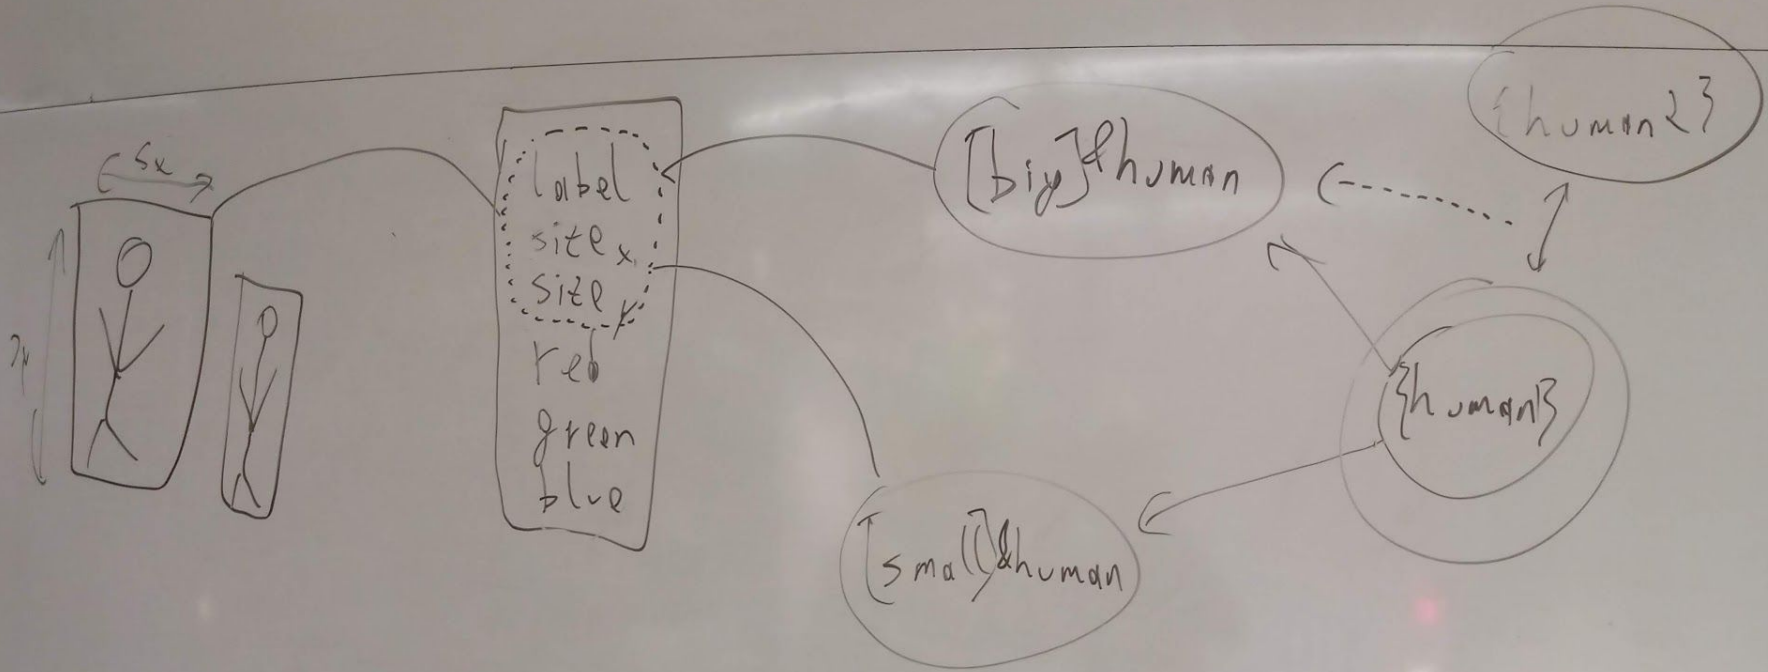 Sx
label
size x
size y
red
green
blue
[big]&human
{human2}
{human}
[small]&human